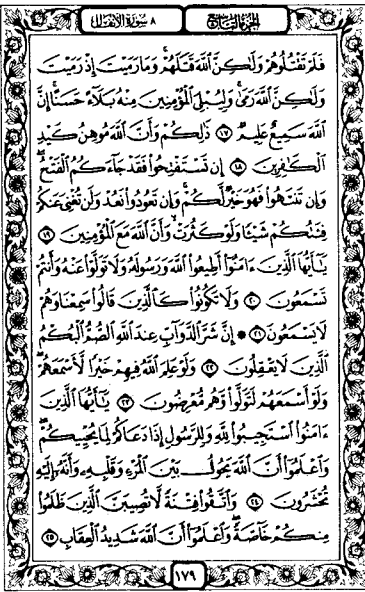 الجزء التاسع
٨ سورة الأنفال
فَلَمْ تَقْتُلُوهُمْ وَلَٰكِنَّ ٱللَّهَ قَتَلَهُمْ ۚ وَمَا رَمَيْتَ إِذْ رَمَيْتَ
وَلَٰكِنَّ ٱللَّهَ رَمَىٰ ۚ وَلِيُبْلِىَ ٱلْمُؤْمِنِينَ مِنْهُ بَلَآءً حَسَنًا ۚ إِنَّ
ٱللَّهَ سَمِيعٌ عَلِيمٌ ١٧ ذَٰلِكُمْ وَأَنَّ ٱللَّهَ مُوهِنُ كَيْدِ
ٱلْكَٰفِرِينَ ١٨ إِن تَسْتَفْتِحُوا۟ فَقَدْ جَآءَكُمُ ٱلْفَتْحُ ۖ
وَإِن تَنتَهُوا۟ فَهُوَ خَيْرٌ لَّكُمْ ۖ وَإِن تَعُودُوا۟ نَعُدْ وَلَن تُغْنِىَ عَنكُمْ
فِئَتُكُمْ شَيْـًٔا وَلَوْ كَثُرَتْ وَأَنَّ ٱللَّهَ مَعَ ٱلْمُؤْمِنِينَ ١٩
يَٰٓأَيُّهَا ٱلَّذِينَ ءَامَنُوٓا۟ أَطِيعُوا۟ ٱللَّهَ وَرَسُولَهُۥ وَلَا تَوَلَّوْا۟ عَنْهُ وَأَنتُمْ
تَسْمَعُونَ ٢٠ وَلَا تَكُونُوا۟ كَٱلَّذِينَ قَالُوا۟ سَمِعْنَا وَهُمْ
لَا يَسْمَعُونَ ٢١ ۞ إِنَّ شَرَّ ٱلدَّوَآبِّ عِندَ ٱللَّهِ ٱلصُّمُّ ٱلْبُكْمُ
ٱلَّذِينَ لَا يَعْقِلُونَ ٢٢ وَلَوْ عَلِمَ ٱللَّهُ فِيهِمْ خَيْرًا لَّأَسْمَعَهُمْ ۖ
وَلَوْ أَسْمَعَهُمْ لَتَوَلَّوا۟ وَّهُم مُّعْرِضُونَ ٢٣ يَٰٓأَيُّهَا ٱلَّذِينَ
ءَامَنُوا۟ ٱسْتَجِيبُوا۟ لِلَّهِ وَلِلرَّسُولِ إِذَا دَعَاكُمْ لِمَا يُحْيِيكُمْ ۖ
وَٱعْلَمُوٓا۟ أَنَّ ٱللَّهَ يَحُولُ بَيْنَ ٱلْمَرْءِ وَقَلْبِهِۦ وَأَنَّهُۥٓ إِلَيْهِ
تُحْشَرُونَ ٢٤ وَٱتَّقُوا۟ فِتْنَةً لَّا تُصِيبَنَّ ٱلَّذِينَ ظَلَمُوا۟
مِنكُمْ خَآصَّةً ۖ وَٱعْلَمُوٓا۟ أَنَّ ٱللَّهَ شَدِيدُ ٱلْعِقَابِ ٢٥
١٧٩